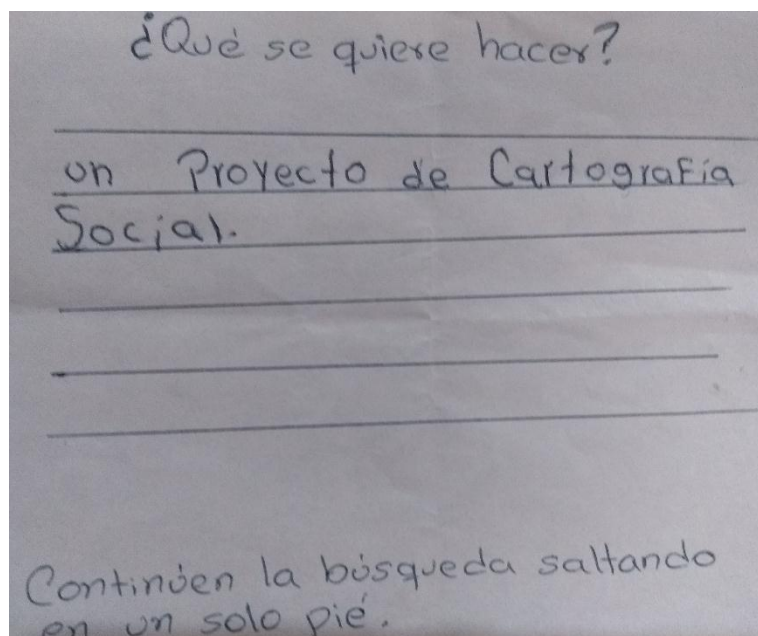 ¿Qué se quiere hacer?
un Proyecto de Cartografía
Social.
Continúen la búsqueda saltando
en un solo pié.